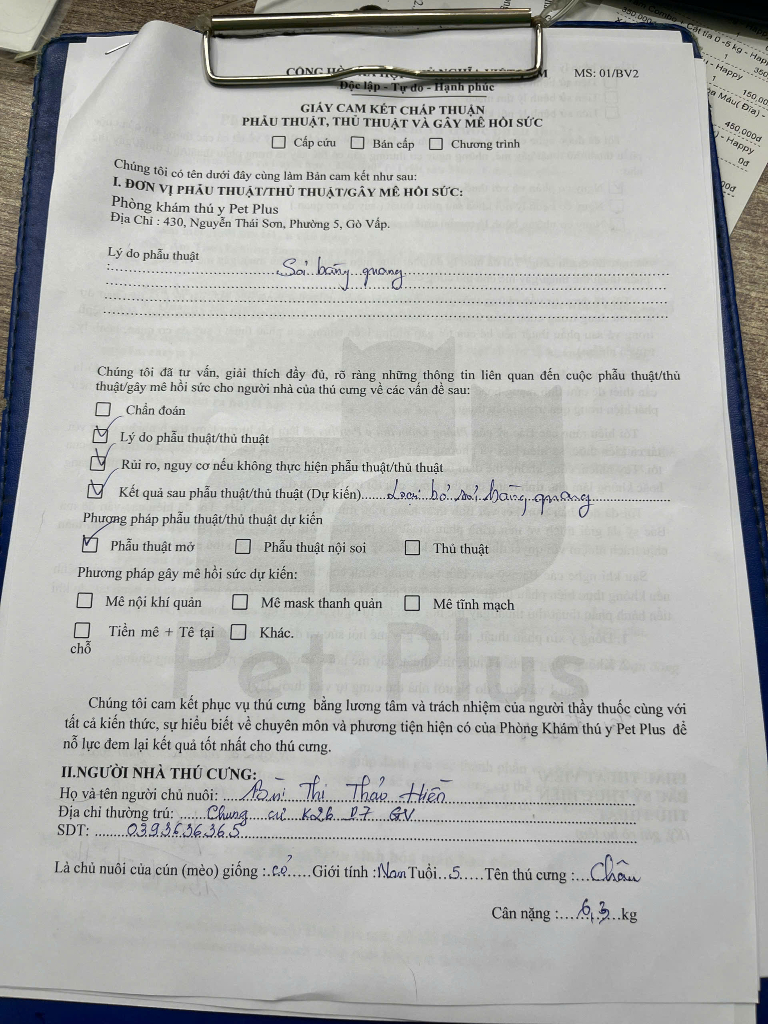 CỘNG HÒA XÃ HỘI CHỦ NGHĨA VIỆT NAM MS: 01/BV2
Độc lập - Tự do - Hạnh phúc
GIẤY CAM KẾT CHẤP THUẬN
PHẪU THUẬT, THỦ THUẬT VÀ GÂY MÊ HỒI SỨC
☐ Cấp cứu ☐ Bán cấp ☐ Chương trình
Chúng tôi có tên dưới đây cùng làm Bản cam kết như sau:
I. ĐƠN VỊ PHẪU THUẬT/THỦ THUẬT/GÂY MÊ HỒI SỨC:
Phòng khám thú y Pet Plus
Địa Chỉ : 430, Nguyễn Thái Sơn, Phường 5, Gò Vấp.
Lý do phẫu thuật
: Sỏi bàng quang
Chúng tôi đã tư vấn, giải thích đầy đủ, rõ ràng những thông tin liên quan đến cuộc phẫu thuật/thủ
thuật/gây mê hồi sức cho người nhà của thú cưng về các vấn đề sau:
☐ Chẩn đoán
☑ Lý do phẫu thuật/thủ thuật
☑ Rủi ro, nguy cơ nếu không thực hiện phẫu thuật/thủ thuật
☑ Kết quả sau phẫu thuật/thủ thuật (Dự kiến)..... Loại bỏ sỏi bàng quang
Phương pháp phẫu thuật/thủ thuật dự kiến
☑ Phẫu thuật mở ☐ Phẫu thuật nội soi ☐ Thủ thuật
Phương pháp gây mê hồi sức dự kiến:
☐ Mê nội khí quản ☐ Mê mask thanh quản ☐ Mê tĩnh mạch
☐ Tiền mê + Tê tại ☐ Khác.
chỗ
Pet Plus
Chúng tôi cam kết phục vụ thú cưng bằng lương tâm và trách nhiệm của người thầy thuốc cùng với
tất cả kiến thức, sự hiểu biết về chuyên môn và phương tiện hiện có của Phòng Khám thú y Pet Plus để
nỗ lực đem lại kết quả tốt nhất cho thú cưng.
II.NGƯỜI NHÀ THÚ CƯNG:
Họ và tên người chủ nuôi: Bùi Thị Thảo Hiền
Địa chỉ thường trú: Chung cư K26 D7 GV
SDT: 0393636365
Là chủ nuôi của cún (mèo) giống :.cỏ.....Giới tính :Nam Tuổi..5.....Tên thú cưng :...Châu
Cân nặng :....6,3...kg